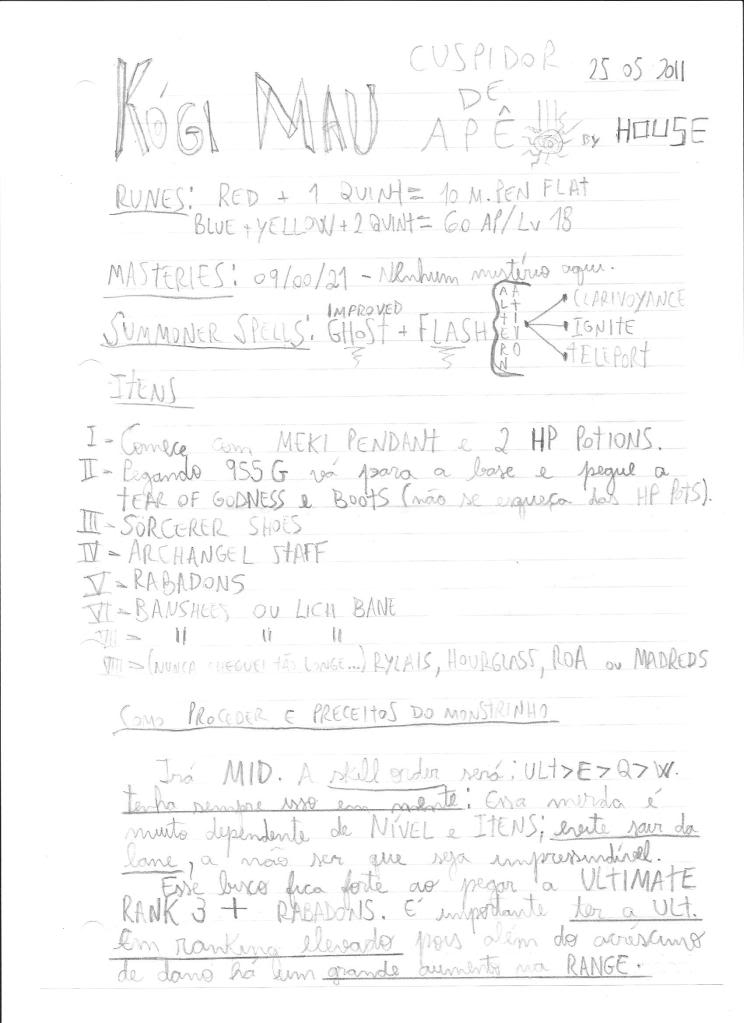 KÓGI MAU
CUSPIDOR
DE
APÊ
25 05 2011
BY HOUSE
RUNES: RED + 1 QUINT = 10 M.PEN FLAT
BLUE + YELLOW + 2 QUINT = 60 AP/LV 18
MASTERIES: 09/00/21 - Nenhum mistério aqui.
SUMMONER SPELLS: IMPROVED GHOST + FLASH
ALTERN
ATIVO
CLARIVOYANCE
IGNITE
TELEPORT
ITENS
I - Começe com MEKI PENDANT e 2 HP POTIONS.
II - Pegando 955 G vá para a base e pegue a
TEAR OF GODNESS e BOOTS (não se esqueça das HP POTS).
III - SORCERER SHOES
IV - ARCHANGEL STAFF
V - RABADONS
VI - BANSHEES OU LICH BANE
VII - " " "
VIII - (NUNCA CHEGUEI TÃO LONGE...) RYLAIS, HOURGLASS, ROA OU MADREDS
COMO PROCEDER E PRECEITOS DO MONSTRINHO
Irá MID. A skill order será: ULT>E>Q>W.
tenha sempre isso em mente: Essa merda é
muito dependente de NÍVEL e ITENS; evite sair da
lane, a não ser que seja impressundível.
Esse bixo fica forte ao pegar a ULTIMATE
RANK 3 + RABADONS. É importante ter a ULT.
em ranking elevado pois além do acréscimo
de dano há um grande aumento na RANGE.